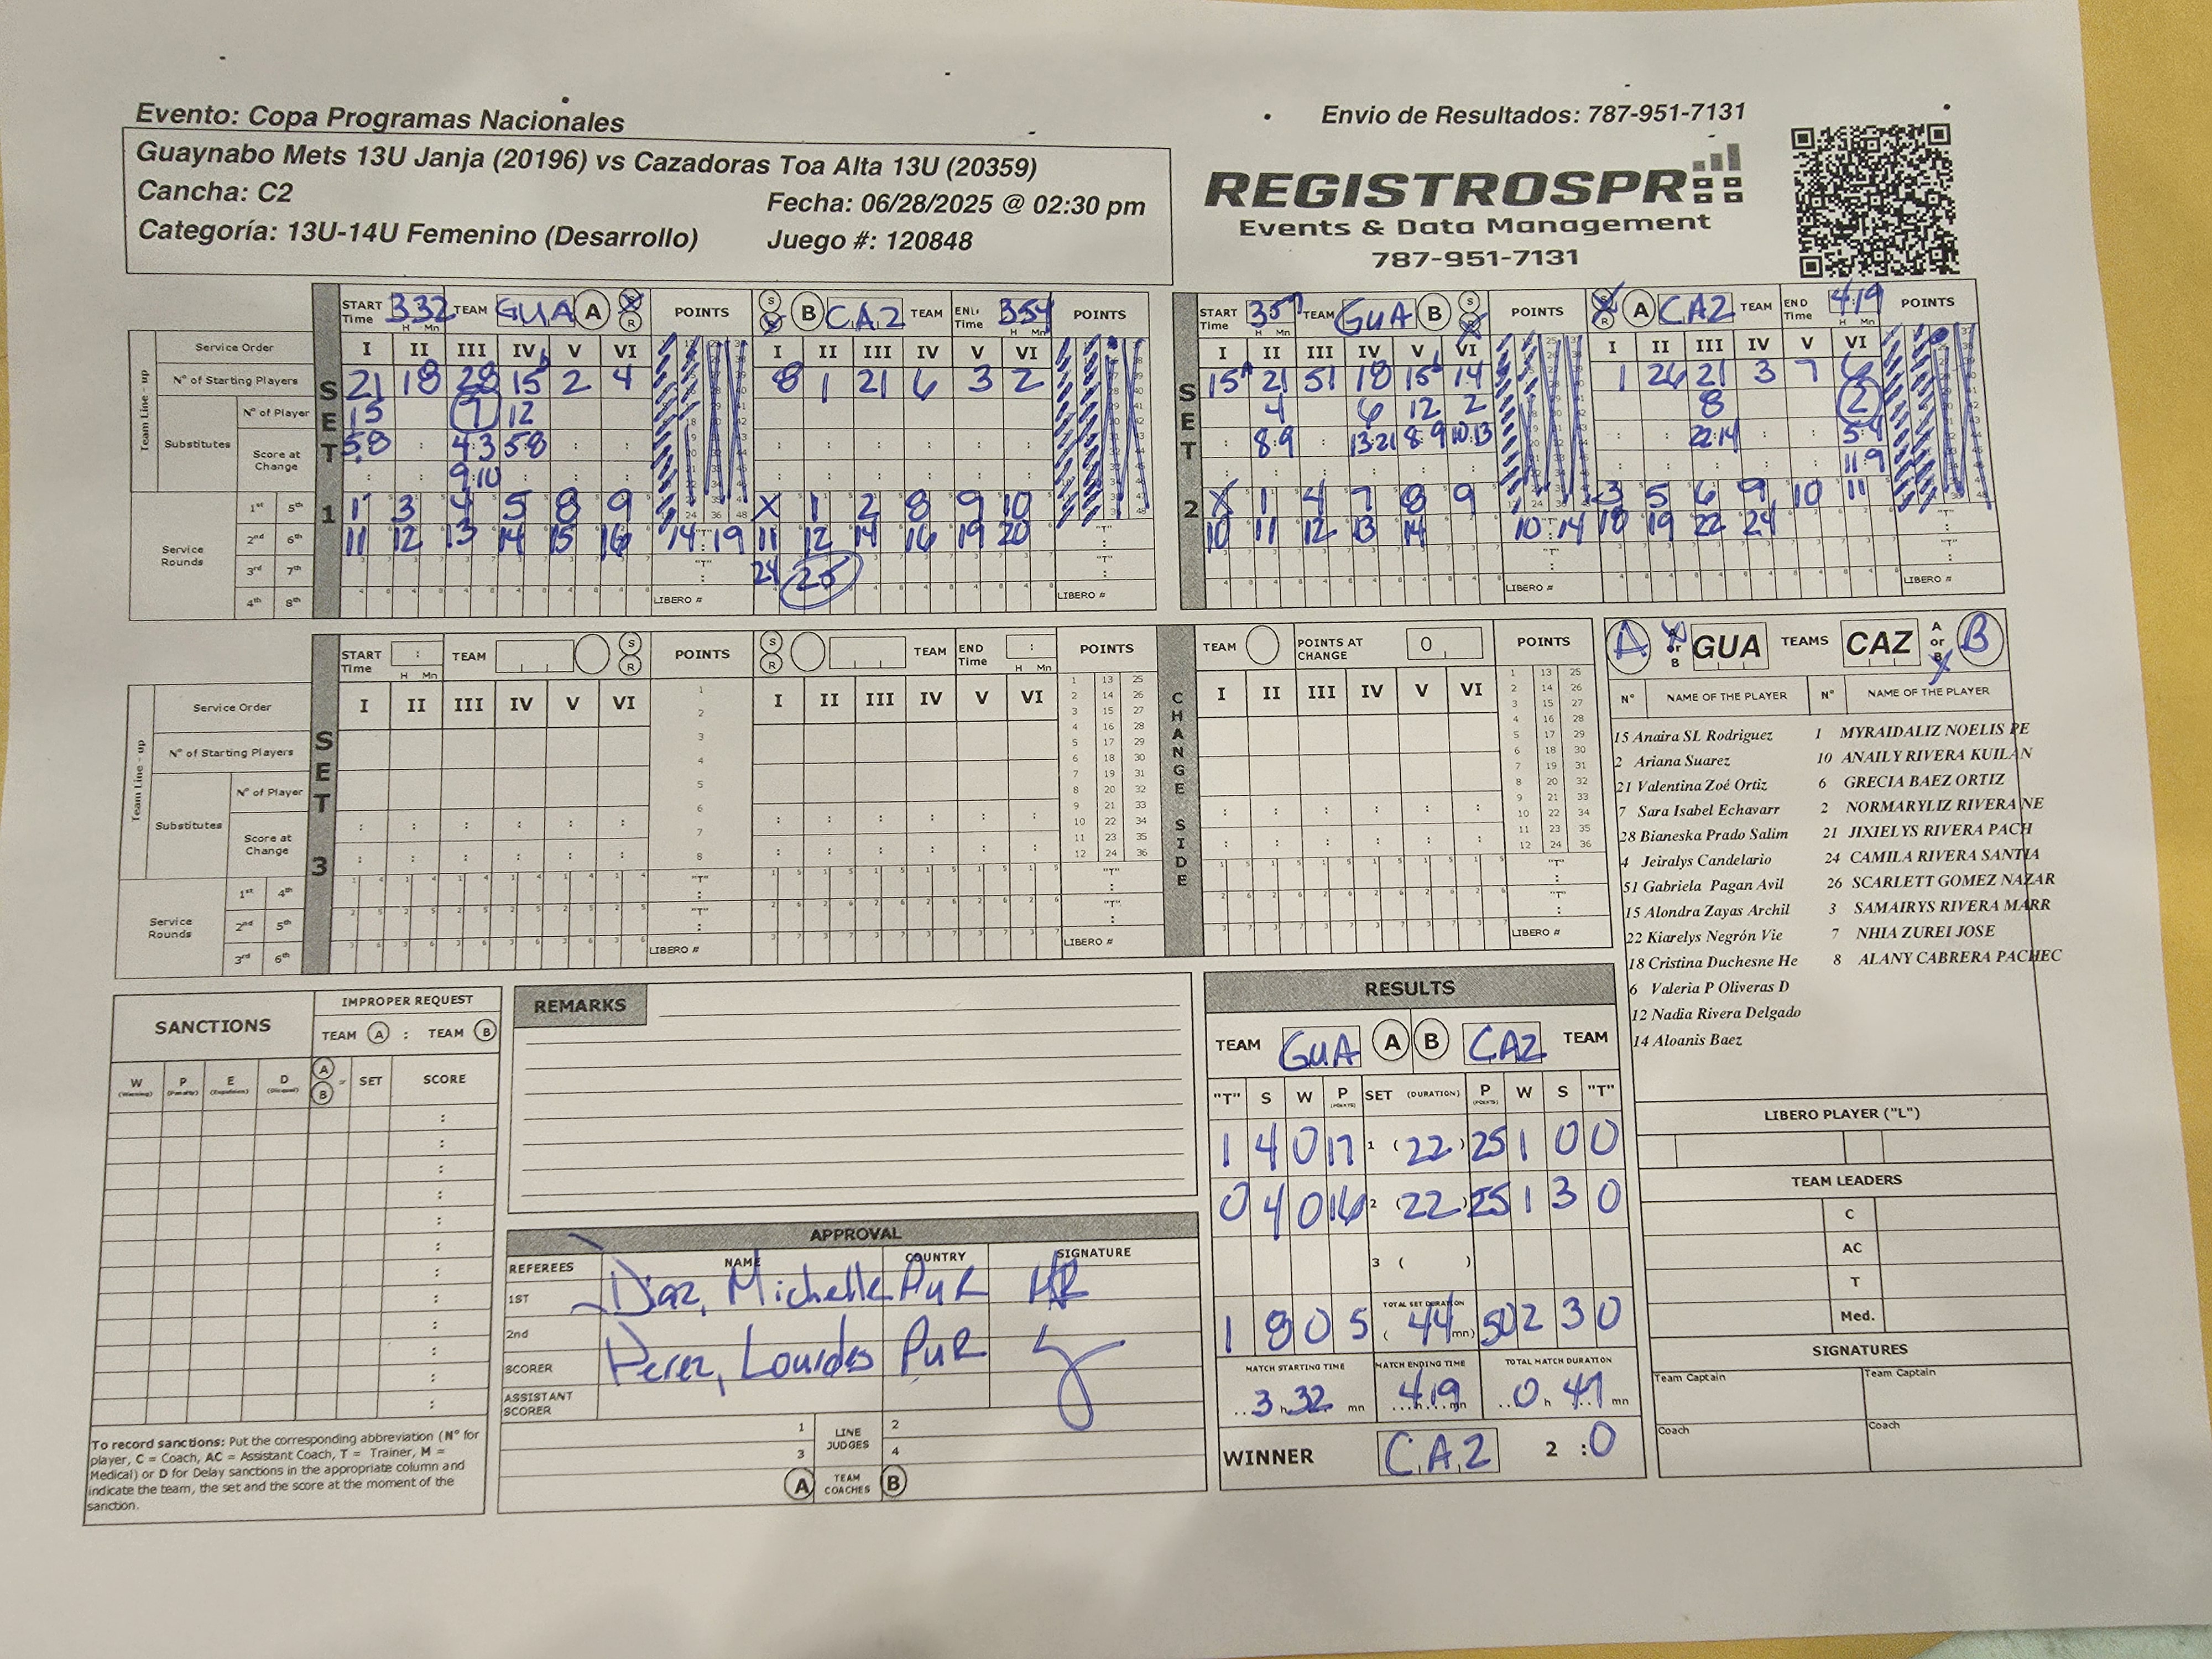 Evento: Copa Programas Nacionales
Envio de Resultados: 787-951-7131
Guaynabo Mets 13U Janja (20196) vs Cazadoras Toa Alta 13U (20359)
Cancha: C2
Fecha: 06/28/2025 @ 02:30 pm
Categoría: 13U-14U Femenino (Desarrollo)
Juego #: 120848
REGISTROSPR
Events & Data Management
787-951-7131
START Time 332 H Mn TEAM GUA A S R POINTS S R B CAZ TEAM END Time 354 H Mn POINTS
START Time 357 H Mn TEAM GUA B S R POINTS S R A CAZ TEAM END Time 419 H Mn POINTS
Team Line - up
Service Order I II III IV V VI I II III IV V VI
SET 1
Nº of Starting Players 21 18 28 15b 2 4 8 1 21 6 3 2
Substitutes
Nº of Player 15 7 12
Score at Change 5:8 4:3 5:8
9:10
Service Rounds
1st 5th 1 3 4 5 8 9 X 1 2 8 9 10
2nd 6th 11 12 13 14 15 16 "T" 14:19 11 12 14 16 19 20 "T"
3rd 7th "T" : 24 25 "T" :
4th 8th LIBERO # LIBERO #
SET 2
I II III IV V VI I II III IV V VI
15A 21 51 18 15b 14 1 26 21 3 7 6
4 6 12 2 8 2
8:9 13:21 8:9 10:13 22:14 5:4
11:9
X 1 4 7 8 9 3 5 6 9 10 11
10 11 12 13 14 10:14 18 19 22 24 "T"
"T" : "T" :
LIBERO # LIBERO #
START Time : H Mn TEAM S R POINTS S R TEAM END Time : H Mn POINTS
TEAM POINTS AT CHANGE 0 POINTS
Team Line - up
Service Order I II III IV V VI I II III IV V VI I II III IV V VI
SET 3
CHANGE SIDE
Nº of Starting Players
Substitutes
Nº of Player
Score at Change
Service Rounds
1st 4th
2nd 5th
3rd 6th
LIBERO # LIBERO # LIBERO #
A A or B GUA TEAMS CAZ A or B B
Nº NAME OF THE PLAYER Nº NAME OF THE PLAYER
15 Anaira SL Rodriguez 1 MYRAIDALIZ NOELIS PE
2 Ariana Suarez 10 ANAILY RIVERA KUILAN
21 Valentina Zoé Ortiz 6 GRECIA BAEZ ORTIZ
7 Sara Isabel Echavarr 2 NORMARYLIZ RIVERA NE
28 Bianeska Prado Salim 21 JIXIELYS RIVERA PACH
4 Jeiralys Candelario 24 CAMILA RIVERA SANTIA
51 Gabriela Pagan Avil 26 SCARLETT GOMEZ NAZAR
15 Alondra Zayas Archil 3 SAMAIRYS RIVERA MARR
22 Kiarelys Negrón Vie 7 NHIA ZUREI JOSE
18 Cristina Duchesne He 8 ALANY CABRERA PACHEC
6 Valeria P Oliveras D
12 Nadia Rivera Delgado
14 Aloanis Baez
LIBERO PLAYER ("L")
TEAM LEADERS
C
AC
T
Med.
SIGNATURES
Team Captain Team Captain
Coach Coach
SANCTIONS
IMPROPER REQUEST
TEAM A : TEAM B
W (Warning) P (Penalty) E (Expulsion) D (Disqual) A or B SET SCORE
To record sanctions: Put the corresponding abbreviation (Nº for
player, C = Coach, AC = Assistant Coach, T = Trainer, M =
Medical) or D for Delay sanctions in the appropriate column and
indicate the team, the set and the score at the moment of the
sanction.
REMARKS
APPROVAL
REFEREES NAME COUNTRY SIGNATURE
1ST Diaz, Michelle PUR
2nd
SCORER Perez, Lourdes PUR
ASSISTANT SCORER
1 LINE JUDGES 2
3 4
A TEAM COACHES B
RESULTS
TEAM GUA A B CAZ TEAM
"T" S W P (POINTS) SET (DURATION) P (POINTS) W S "T"
1 4 0 17 1 (22) 25 1 0 0
0 4 0 16 2 (22) 25 1 3 0
3 ( )
TOTAL SET DURATION
1 8 0 5 (44 mn) 50 2 3 0
MATCH STARTING TIME MATCH ENDING TIME TOTAL MATCH DURATION
3 h 32 mn 4 19 mn 0 h 47 mn
WINNER CAZ 2 :0